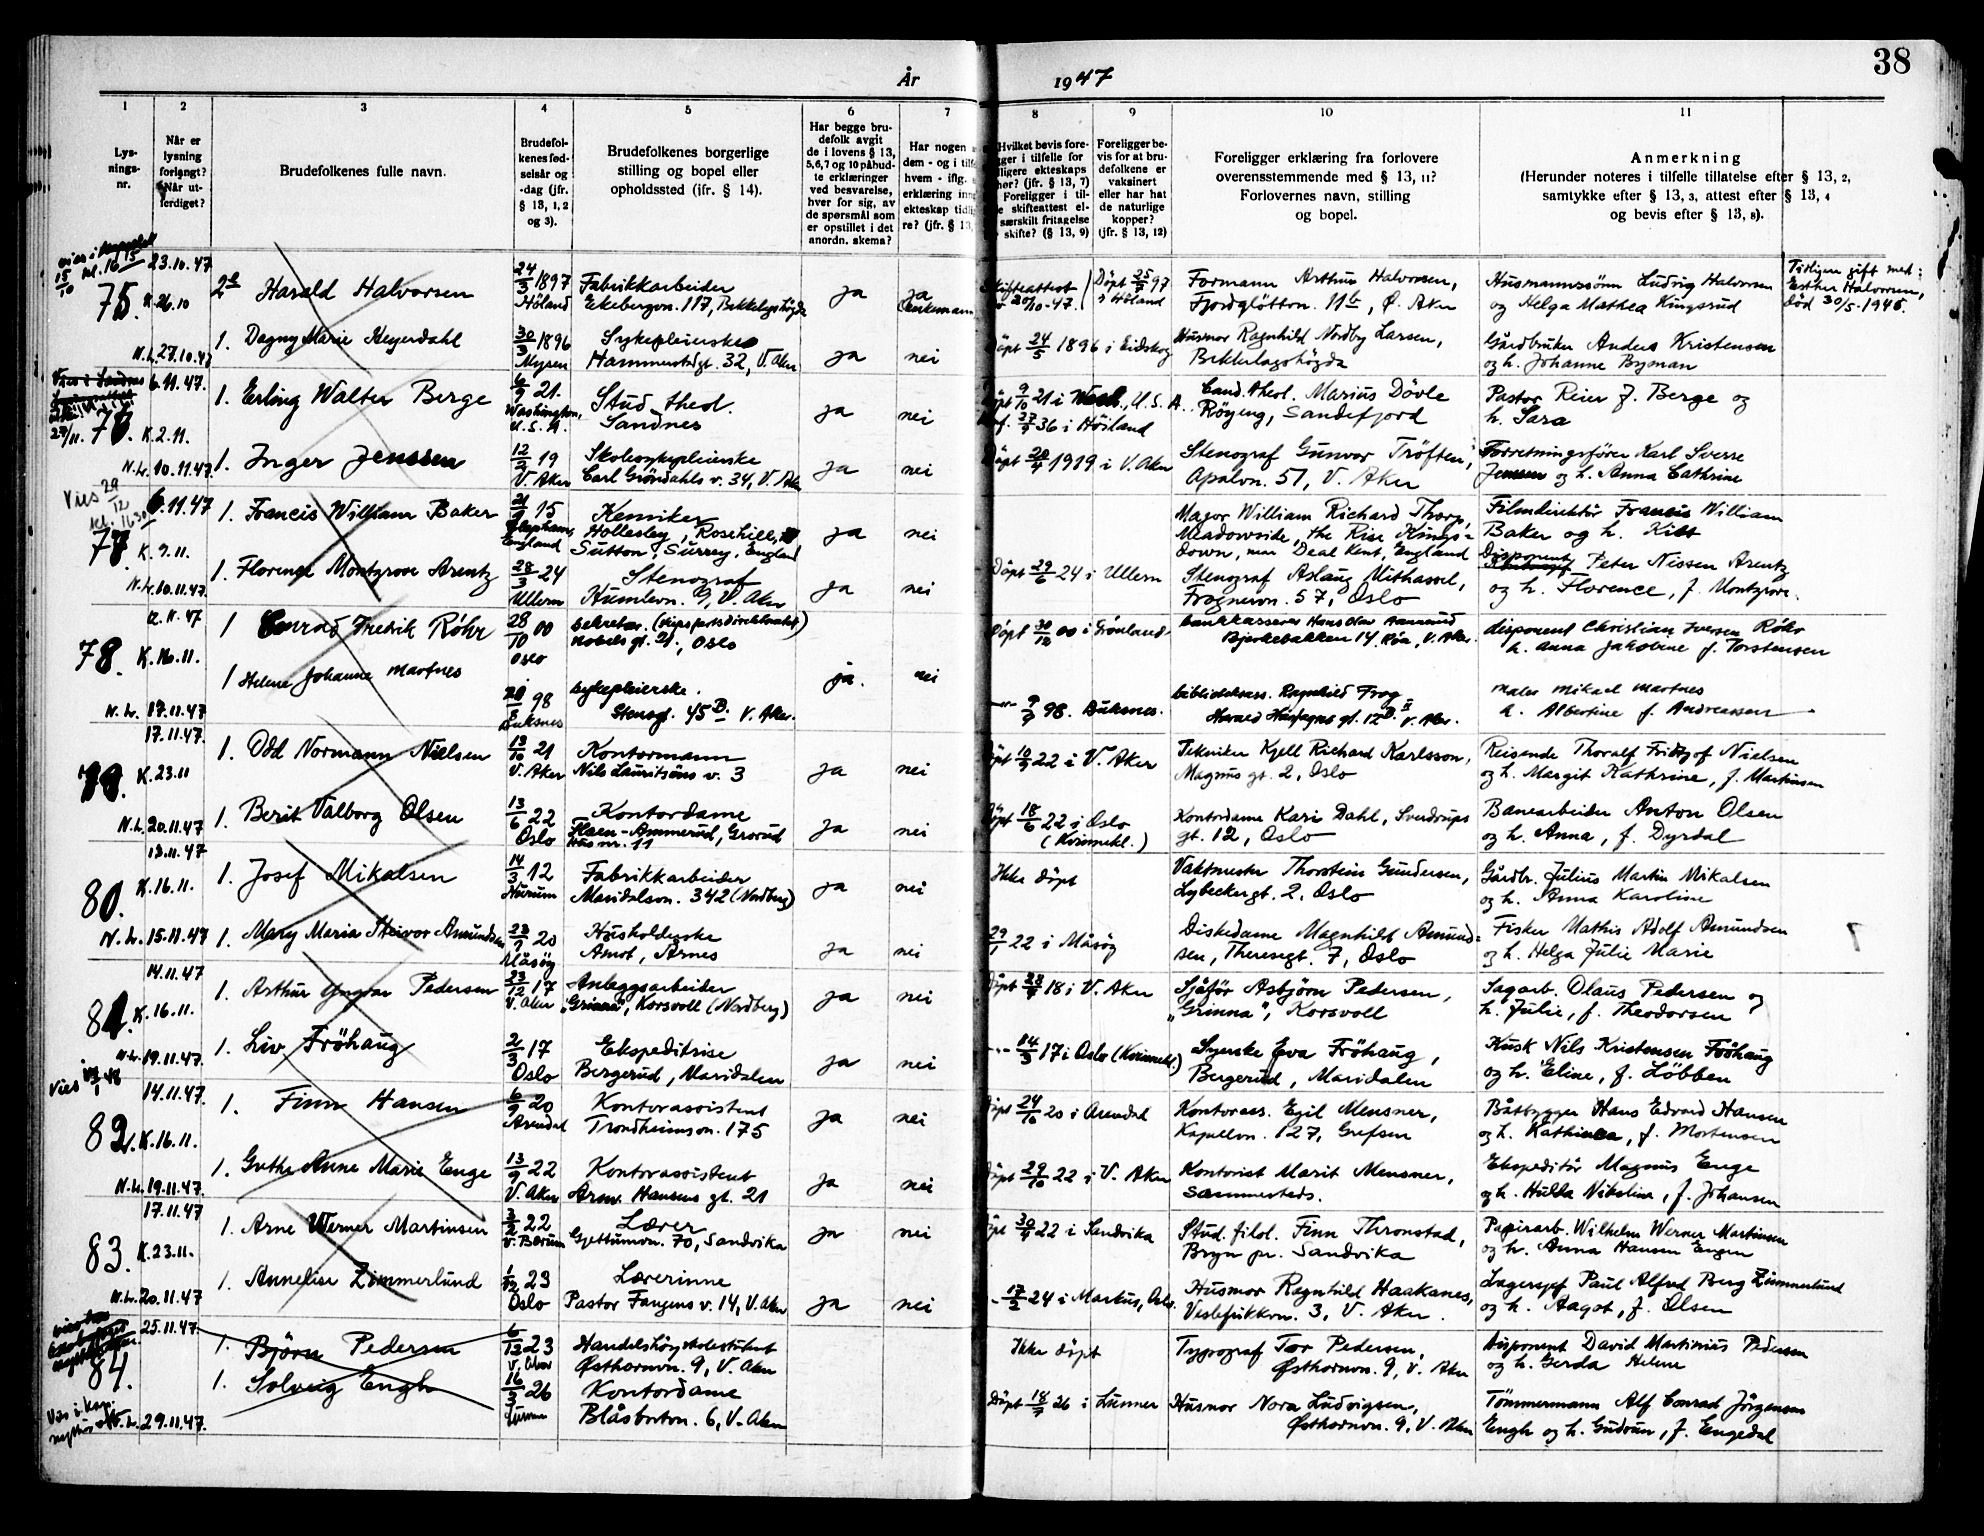 38
År 1947
1 2 3 4 5 6 7 8 9 10 11
Lys-
nings-
nr.
Når er
lysning
forlangt?
Når ut-
ferdiget?
Brudefolkenes fulle navn.
Brudefol-
kenes fød-
selsår og
-dag (jfr.
§ 13, 1, 2
og 3).
Brudefolkenes borgerlige
stilling og bopel eller
opholdssted (jfr. § 14).
Har begge bru-
defolk avgit
de i lovens § 13,
5,6,7 og 10 påbud-
te erklæringer
ved besvarelse,
hver for sig, av
de spørsmål som
er opstillet i det
anordn. skema?
Har nogen
dem - og i tilf
hvem - iflg.
erklæring inn
ekteskap tidli
re? (jfr. § 13,
Hvilket bevis fore-
gger i tilfelle for
lligere ekteskaps
hør? (jfr. § 13, 7)
Foreligger i til-
e skifteattest el-
særskilt fritagelse
skifte? (§ 13, 9)
Foreligger be-
vis for at bru-
defolkene er
vaksinert
eller har hat
de naturlige
kopper?
(jfr. § 13, 12)
Foreligger erklæring fra forlovere
overensstemmende med § 13, 11?
Forlovernes navn, stilling
og bopel.
Anmerkning
(Herunder noteres i tilfelle tillatelse efter § 13, 2,
samtykke efter § 13, 3, attest efter § 13, 4
og bevis efter § 13, 8).
75. 23.10.47 K. 26.10
2. Harald Halvorsen 24/3 1897 Høland
Fabrikkarbeider
Ekebergvn. 117, Bekkelagshøgda
ja ja Enkemann
Skifteattest 20/10-47.
Döpt 25/7 97 i Höland
Formann Arthur Halvorsen,
Fjordgløtton. 11 b, Ø. Aker
Husmannssönn Ludvig Halvorsen
og Helga Mathea Kingsrud
Tidligere gift med:
Esther Halvorsen,
död 30/5-1945.
N.L. 27.10.47
1. Dagny Marie Heyerdahl 30/3 1896 Mysen
Sykepleierske
Hammerstadgt. 32, V. Aker
ja nei
Döpt 24/5 1896 i Eidskog
Husmor Ragnhild Nordby Larsen,
Bekkelagshögda
Gårdbruker Anders Kristensen
og h. Johanne Byman
6.11.47. K. 2.11.
1. Erling Walter Berge 21. Washington, U.S.A.
Stud. theol.
Sandnes
ja nei
Döpt 9/10 21 i Wash., U.S.A.
36 i Höiland
Cand. theol. Marius Dövle
Röyeng, Sandefjord
Pastor Reier J. Berge og
h. Sara
N.L. 10.11.47
1. Inger Jenssen 12/2 19 V. Aker
Skolesykepleierske
Carl Gröndahls v. 34, V. Aker
ja nei
Döpt 20/4 1919 i V. Aker
Stenograf Gunvor Tröften,
Apalvn. 51, V. Aker
Forretningsförer Karl Sverre
Jenssen og h. Anna Cathrine
Vies 29/12 kl. 1630
77. 6.11.47 K. 9.11.
1. Francis William Baker 15 England
Kemiker
Hollesley, Rosehill,
Sutton, Surrey, England
ja nei
Major William Richard Thorp,
Meadowside, the Rise Kings-
down, near Deal Kent, England
Filmdirektör Francis William
Baker og h. Kitt
N.L. 10.11.47.
1. Florence Montgrove Arentz 28/3 24 Ullern
Stenograf
Humlevn. 9, V. Aker
ja nei
Döpt 29/6 24 i Ullern
Stenograf Aslaug Mithassel,
Frognervn. 57, Oslo
Disponent Peter Nissen Arentz
og h. Florence, f. Montgrove.
78. K. 16.11.
1 Conrad Fredrik Röhr 28/10 00 Oslo
sekretær. (skipsfartsdirektoratet)
Nobels gt. 21., Oslo
ja. nei
Döpt 30/12 00 i Grönland.
bankkasserer Hans Olav Aamerud
Bjerkebakken 14, Röa, V. Aker.
disponent Christian Iversen Röhr
h. Anna Jakobine f. Torstensen
N.L. 17.11.47
1 Helene Johanne Martnes 98 Buksnes
sykepleierske.
Stensgt. 45 B. V. Aker.
98. Buksnes.
bibliotekass. Ragnhild Frog
Harald Hårfagres gt. 12 B. II V. Aker.
maler Mikael Martnes
h. Albertine f. Andreassen
79. 17.11.47. K. 23.11
1. Odd Normann Nielsen 13/10 21 V. Aker
Kontormann
Nils Lauritsöns v. 3
ja nei
Döpt 10/9 22 i V. Aker
Tekniker Kjell Richard Karlsson,
Magnus gt. 2, Oslo
Reisende Thoralf Fridtjof Nielsen
og h. Margit Kathrine, f. Martinsen
N.L. 20.11.47
1. Berit Valborg Olsen 13/6 22 Oslo
Kontordame
Flaen-Ammerud, Grorud
Hus nr. 11
ja nei
Döpt 18/6 22 i Oslo (Kvinnekl.)
Kontordame Kari Dahl, Sverdrups
gt. 12, Oslo
Banearbeider Anton Olsen
og h. Anna, f. Dyrdal
80. 13.11.47 K. 16.11.
1. Josef Mikalsen 14/3 12 Hurum
Fabrikkarbeider
Maridalsvn. 342 (Nordberg)
ja nei
Ikke döpt
Vaktmester Thorstein Gundersen,
Lybeckergt. 2, Oslo
Gårdbr. Julius Martin Mikalsen
og h. Anna Karoline
N.L. 15.11.47
1. Mary Maria Steivor Amundsen 20 Måsöy
Husholderske
Amot, Årnes
ja nei
22 i Måsöy
Diskedame Magnhild Amund-
sen, Theresegt. 7, Oslo
Fisker Mathis Adolf Amundsen
og h. Helga Julie Marie
81. 14.11.47 K. 16.11.
1. Arthur Yngvar Pedersen 23/12 17 V. Aker
Anleggsarbeider
"Grinna", Korsvoll (Nordberg)
ja nei
Döpt 18 i V. Aker
Sjåför Asbjörn Pedersen,
"Grinna", Korsvoll
Sagarb. Olaus Pedersen og
h. Julie, f. Theodorsen
N.L. 19.11.47.
1. Liv Fröhaug 2/3 17 Oslo
Ekspeditrise
Bergerud, Maridalen
ja nei
17 i Oslo (Kvinnekl.)
Syerske Eva Fröhaug,
Bergerud, Maridalen
Kusk Nils Kristensen Fröhaug
og h. Eline, f. Löbben
82. 14.11.47. K. 16.11.
1. Finn Hansen 6/9 20 Arendal
Kontorassistent
Trondheimsvn. 175
ja nei
Döpt 24/10 20 i Arendal
Kontorass. Egil Mensner,
Kapellvn. 127, Grefsen
Båtbygger Hans Edvard Hansen
og h. Kathinca, f. Mortensen
N.L. 19.11.47.
1. Grethe Anne Marie Enge 13/9 22 V. Aker
Kontorassistent
Arne Hansens gt. 21
ja nei
Döpt 29/10 22 i V. Aker
Kontorist Marit Mensner,
Sammesteds.
Ekspeditör Magnus Enge
og h. Hulda Nikoline, f. Johansen
83. 17.11.47 K. 23.11.
1. Arne Werner Martinsen 3/2 22 V. Bærum
Lærer
Gjettumvn. 70, Sandvika
ja nei
Döpt 30/4 22 i Sandvika
Stud. filol. Finn Thronstad,
Bryn pr. Sandvika
Papirarb. Wilhelm Werner Martinsen
og h. Anna Hansen Engen
N.L. 20.11.47
1. Annelise Zimmerlund 1/12 23 Oslo
Lærerinne
Pastor Fangens v. 14, V. Aker
ja nei
17/2 24 i Markus, Oslo.
Husmor Ragnhild Haakanes,
Veslefrikkvn. 3, V. Aker.
Lagersjef Paul Alfred Berg Zimmerlund
og h. Aagot, f. Olsen
84. 25.11.47
1. Björn Pedersen 6/12 23 V. Aker
Handelshögskolestudent
Østhornvn. 9, V. Aker
Ikke döpt
Typograf Tor Pedersen,
Østhornvn. 9, V. Aker
Disponent David Martinius Pedersen
og h. Gerda Helene
N.L. 29.11.47.
1. Solveig Engh 16/3 26 Lunner
Kontordame
Blåsbortvn. 6, V. Aker
Döpt 18/7 26 i Lunner
Husmor Nora Ludvigsen,
Østhornvn. 9, V. Aker
Tömmermann Alf Conrad Jörgensen
Engh og h. Gudrun, f. Engedal